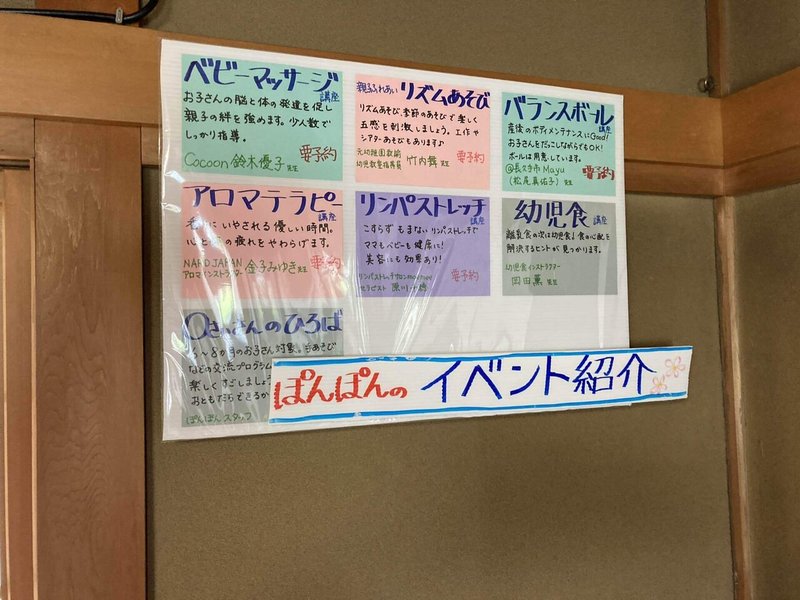 ベビーマッサージ
講座
お子さんの脳と体の発達を促し
親子の絆を強めます。少人数で
しっかり指導。
要予約
Cocoon 鈴木優子 先生
親子ふれあい リズムあそび
リズムあそび、季節のあそびで楽しく
五感を刺激しましょう。工作や
シアターあそびもあります♪
元幼稚園教諭
幼児教室指導員
竹内舞 先生
要予約
バランスボール
講座
産後のボディメンテナンスにGood!
お子さんをだっこしながらでもOK!
ボールは用意しています。
@長久手市 Mayu
(松尾真佑子) 先生
要予約
アロマテラピー
講座
にいやされる優しい時間。
の疲れをやわらげます。
NARD JAPAN
アロマインストラクター
金子みゆき 先生
要予約
リンパストレッチ
講座
こすらず もまない リンパストレッチで
ママもベビーも健康に!
美容にも効果あり!
リンパストレッチサロン
セラピスト
要予約
幼児食
講座
離乳食の次は幼児食♪食の心配を
解決するヒントが見つかります。
幼児食インストラクター
岡田薫 先生
0さいさんのひろば
8か月のお子さん対象。
などの交流プログラム
楽しくすごしましょう
おともだちできるか
ぽんぽんスタッフ
ぽんぽんの イベント紹介